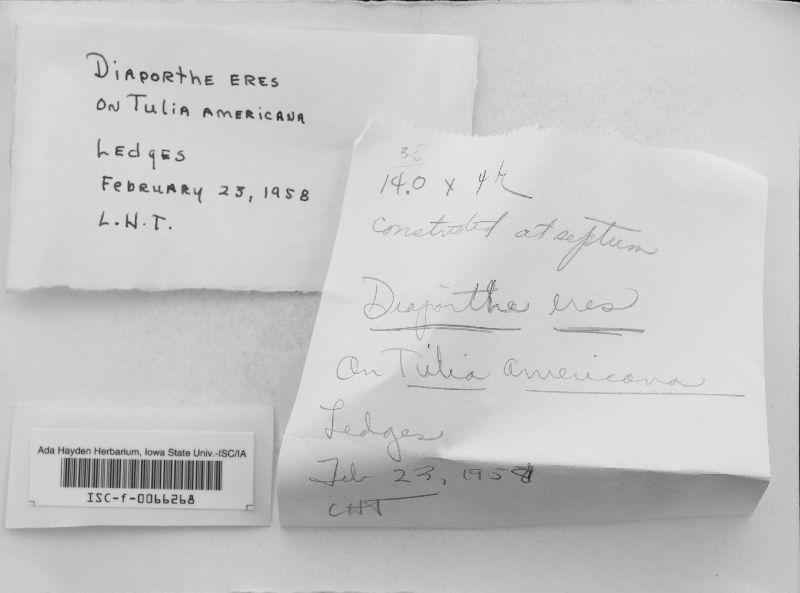 Diaporthe eres
on Tulia americana
Ledges
February 23, 1958
L.H.T.
3.5
14.0 x 4
constricted at septum
Diaporthe eres
on Tilia americana
Ledges
Feb 23, 1958
LHT
Ada Hayden Herbarium, Iowa State Univ.-ISC/IA
ISC-f-0066268